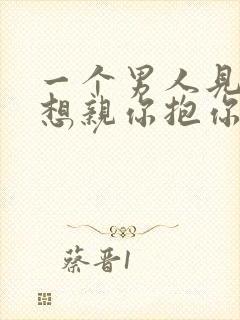 一个男人见
想亲你抱你
蔡晋1